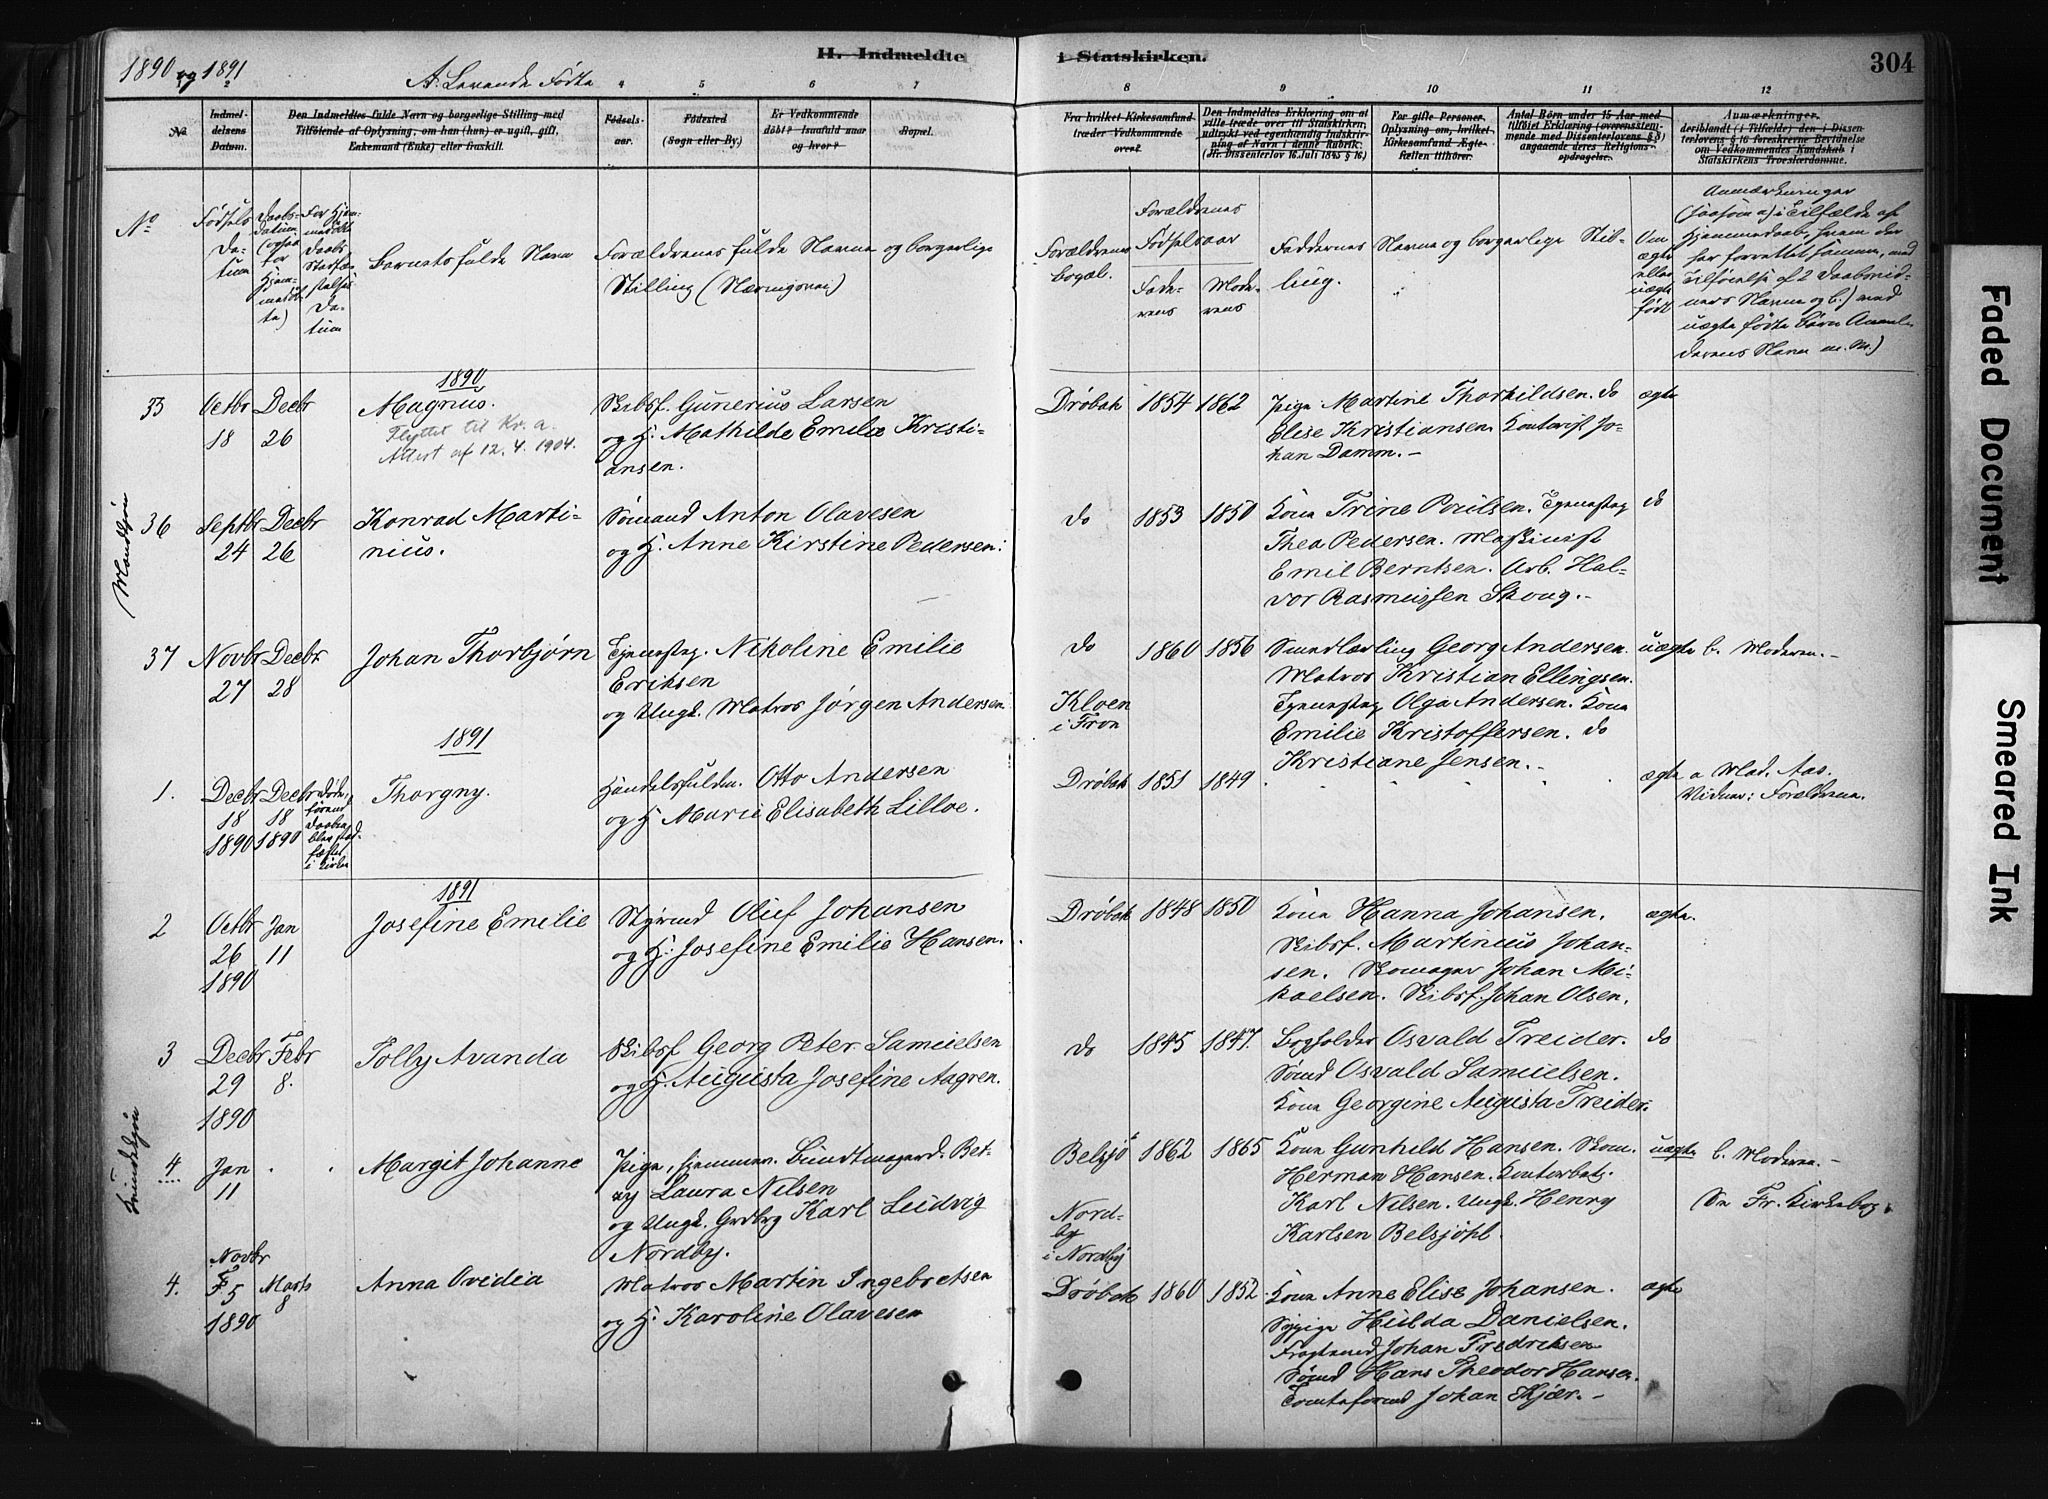 1890 og 1891
A. Levende Fødte
H. Indmeldte
i Statskirken.
304
1 2 3 4 5 6 7
8 9 10 11 12
No
Indmel-
delsens
Datum.
Den Indmeldtes fulde Navn og borgerlige Stilling med
Tilføiende af Oplysning, om han (hun) er ugift, gift,
Enkemand (Enke) eller fraskilt.
Fødsels-
aar.
Fødested
(Sogn eller By.)
Er Vedkommende
døbt? Isaafald naar
og hvor?
Bopæl.
Fra hvilket Kirkesamfund
træder Vedkommende
over?
Den Indmeldtes Erklæring om at
ville træde over til Statskirken,
udtrykt ved egenhændig Indskriv-
ning af Navn i denne Rubrik.
(Jfr. Dissenterlov 16 Juli 1845 § 16)
For gifte Personer
Oplysning om, hvilket
Kirkesamfund Ægte-
fællen tilhører.
Antal Børn under 15 Aar med
tilføiet Erklæring (overensstem-
mende med Dissenterlovens § 8)
angaaende deres Religions-
opdragelse.
Anmærkninger,
deriblandt (i Tilfælde) den i Dissen-
terlovens § 16 foreskrevne Bevidnelse
om Vedkommendes Kundskab i
Statskirkens Troeslærdomme.
No
Fødsels
Da-
tum
Daabs-
datum
(ogsaa
for
Hjem-
medøb-
te)
For Hjem-
medøbte
Daabs
Stadfæs-
telses
Da-
tum
Barnets fulde Navn
Forældrenes fulde Navne og borgerlige
Stilling (Næringsvei)
Forældrenes
bopæl.
Forældrenes
Fødselsaar
Fade-
rens
Mode-
rens
Faddernes Navne og borgerlige Stil-
ling.
Om
ægte
eller
uægte
født
Anmærkninger
(saasom a) i Tilfælde af
Hjemmedaab, hvem der
har forrettet samme, med
Tilføielse af 2 Daabsvid-
ners Navne og b.) ved
uægte fødte Børn Anmel-
derens Navn m. M.)
1890
35 Octbr 18 Decbr 26 Magnus.
Flyttet til Kr. a.
Attest af 12. 4. 1904.
Skibsf. Gunerius Larsen
og H. Mathilde Emilie Kristi-
ansen.
Drøbak 1854 1862 Pige Martine Thorkildsen. do ægte
Elise Kristiansen. Kontorist Jo-
han Damm. –
Mandkjøn
36 Septbr 24 Decbr 26 Konrad Marti-
nius.
Sømand Anton Olavesen
og H. Anne Kirstine Pedersen.
do 1853 1850 Kone Trine Poulsen. Tjenestpg do
Thea Pedersen. Maskinist
Emil Berntsen. Arb. Hal-
vor Rasmussen Skoug. –
37 Novbr 27 Decbr 28 Johan Thorbjørn
Tjenestpg. Nikoline Emilie
Eriksen
og Ungk. Matros Jørgen Andersen
do
Kloen
i Tron
1860 1856 Smedlærling Georg Andersen. uægte b. Moderen. –
Matros Kristian Ellingsen.
Tjenestpg Olga Andersen. Kone
Emilie Kristoffersen. do
Kristiane Jensen. –
1891
1. Decbr 18 1890 Decbr 18 1890 Døde,
førend
Daaben
blev stad-
fæstet
i Kirken
Thorgny.
Handelsfuldm. Otto Andersen
og H. Marie Elisabeth Lilloe.
Drøbak 1851 1849 ægte a Mad. Aas.
Vidner: Forældrene.
1891
2 Octbr 26 1890 Jan 11 Josefine Emilie
Styrmd Olief Johansen
og H. Josefine Emilie Hansen.
Drøbak 1848 1850 Kone Hanna Johansen. ægte.
Skibsf. Martinius Johan-
sen. Skomager Johan Mi-
kaelsen. Skibsf. Johan Olsen.
3 Decbr 29 1890 Febr 8. Tolly Avanda
Skibsf Georg Peter Samuelsen
og H. Augusta Josefine Aagren.
do 1845 1847. Bogholder Osvald Treider. do
Sømd Osvald Samuelsen.
Kone Georgine Augusta Treider.
Kvindekjøn
4 Jan 11 Margit Johanne
Pige, hjemmev. Bet-
sy Laura Nilsen
og Ungk. Grdbrg Karl Ludvig
Nordby.
Belsjø
Nord-
by
i Nordby
1862 1865 Kone Gunhild Hansen. Skom. uægte b. Moderen. –
Herman Hansen. Kontorbetj.
Karl Nilsen. Ungk. Henry
Karlsen Belsjøhl.
Se Fr. Kirkebog.
4. Novbr 5 1890 Marts 8 Anna Ovidia
Matros Martin Ingebretsen
og H. Karoline Olavesen
Drøbak 1860 1852. Kone Anne Elise Johansen. ægte
Sypige Hulda Danielsen.
Fragtemd Johan Fredriksen
Sømd Hans Theodor Hansen.
Tomteformd Johan Kjær. –
Faded Document
Smeared Ink